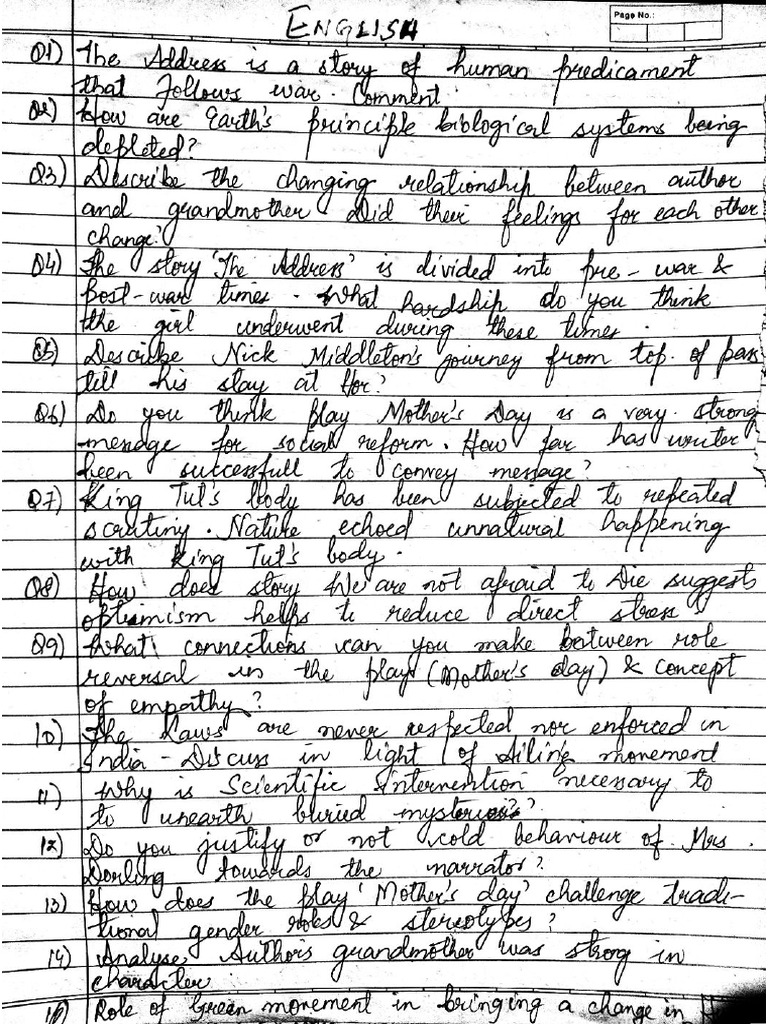 ENGLISH
Page No.:
Q1) The Address is a story of human predicament
that follows war. Comment
Q2) How are Earth's principle biological systems being
depleted?
Q3) Describe the changing relationship between author
and grandmother. Did their feelings for each other
change?
Q4) The story 'The Address' is divided into pre-war &
post-war times. What hardship do you think
the girl underwent during these times.
Q5) Describe Nick Middleton's journey from top of pass
till his stay at Hor?
Q6) Do you think play Mother's Day is a very strong
message for social reform. How far has writer
been successfull to convey message?
Q7) King Tut's body has been subjected to repeated
scrutiny. Nature echoed unnatural happening
with King Tut's body.
Q8) How does story We are not afraid to Die suggests
optimism helps to reduce direct stress
Q9) What connections can you make between role
reversal in the play (Mother's day) & concept
of empathy?
10) The Laws are never respected nor enforced in
India - Discuss in light of Ailing movement
11) Why is Scientific Intervention necessary to
to unearth buried mysteries?
12) Do you justify or not cold behaviour of Mrs.
Dorling towards the narrator?
13) How does the play 'Mother's day' challenge tradi-
tional gender roles & stereotypes?
14) Analyse Author's grandmother was strong in
character
15) Role of Green movement in bringing a change in